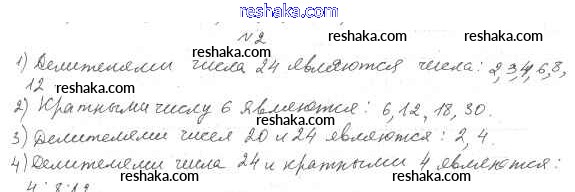 reshaka.com
№2
reshaka.com reshaka.com
1) Делителями числа 24 являются числа: 2,3,4,6,8,
12 reshaka.com
2) Кратными числу 6 являются: 6, 12, 18, 30.
reshaka.com
3) Делителями чисел 20 и 24 являются: 2, 4.
reshaka.com reshaka.com
4) Делителями числа 24 и кратными 4 являются:
4; 8; 12 reshaka.com